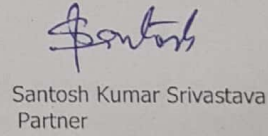 Santosh
Santosh Kumar Srivastava
Partner